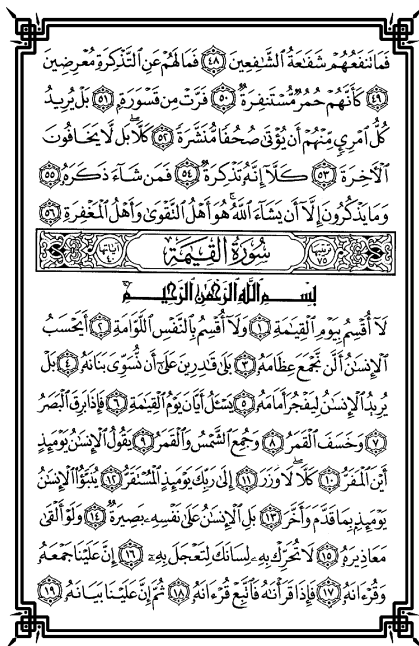 فَمَا تَنفَعُهُمْ شَفَاعَةُ الشَّافِعِينَ ٤٨ فَمَا لَهُمْ عَنِ التَّذْكِرَةِ مُعْرِضِينَ
٤٩ كَأَنَّهُمْ حُمُرٌ مُّسْتَنفِرَةٌ ٥٠ فَرَّتْ مِن قَسْوَرَةٍ ٥١ بَلْ يُرِيدُ
كُلُّ امْرِئٍ مِّنْهُمْ أَن يُؤْتَىٰ صُحُفًا مُّنَشَّرَةً ٥٢ كَلَّا ۖ بَل لَّا يَخَافُونَ
الْآخِرَةَ ٥٣ كَلَّا إِنَّهُ تَذْكِرَةٌ ٥٤ فَمَن شَاءَ ذَكَرَهُ ٥٥
وَمَا يَذْكُرُونَ إِلَّا أَن يَشَاءَ اللَّهُ ۚ هُوَ أَهْلُ التَّقْوَىٰ وَأَهْلُ الْمَغْفِرَةِ ٥٦
ترتيبها ٧٥ سُورَةُ الْقِيَٰمَةِ آياتها ٤٠
بِسْمِ اللَّهِ الرَّحْمَٰنِ الرَّحِيمِ
لَا أُقْسِمُ بِيَوْمِ الْقِيَٰمَةِ ١ وَلَا أُقْسِمُ بِالنَّفْسِ اللَّوَّامَةِ ٢ أَيَحْسَبُ
الْإِنسَٰنُ أَلَّن نَّجْمَعَ عِظَامَهُ ٣ بَلَىٰ قَٰدِرِينَ عَلَىٰ أَن نُّسَوِّيَ بَنَانَهُ ٤ بَلْ
يُرِيدُ الْإِنسَٰنُ لِيَفْجُرَ أَمَامَهُ ٥ يَسْـَٔلُ أَيَّانَ يَوْمُ الْقِيَٰمَةِ ٦ فَإِذَا بَرِقَ الْبَصَرُ
٧ وَخَسَفَ الْقَمَرُ ٨ وَجُمِعَ الشَّمْسُ وَالْقَمَرُ ٩ يَقُولُ الْإِنسَٰنُ يَوْمَئِذٍ
أَيْنَ الْمَفَرُّ ١٠ كَلَّا لَا وَزَرَ ١١ إِلَىٰ رَبِّكَ يَوْمَئِذٍ الْمُسْتَقَرُّ ١٢ يُنَبَّؤُا الْإِنسَٰنُ
يَوْمَئِذٍ بِمَا قَدَّمَ وَأَخَّرَ ١٣ بَلِ الْإِنسَٰنُ عَلَىٰ نَفْسِهِ بَصِيرَةٌ ١٤ وَلَوْ أَلْقَىٰ
مَعَاذِيرَهُ ١٥ لَا تُحَرِّكْ بِهِ لِسَانَكَ لِتَعْجَلَ بِهِ ١٦ إِنَّ عَلَيْنَا جَمْعَهُ
وَقُرْءَانَهُ ١٧ فَإِذَا قَرَأْنَٰهُ فَاتَّبِعْ قُرْءَانَهُ ١٨ ثُمَّ إِنَّ عَلَيْنَا بَيَانَهُ ١٩